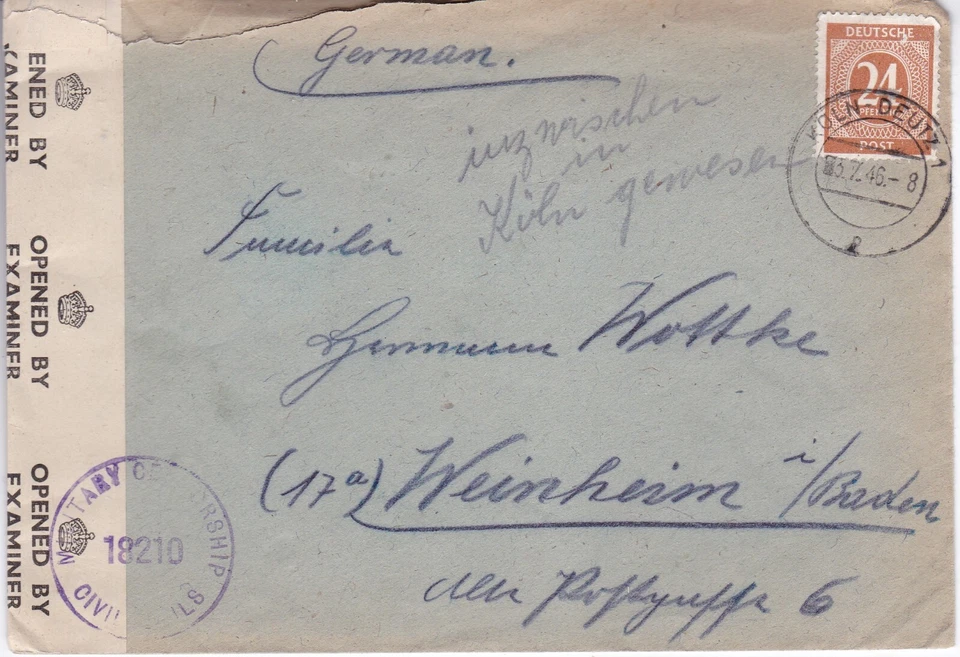 German.
inzwischen
in
Köln gewesen
Familie
Hermann Wottke
(17a) Weinheim i/Baden
alte Postgasse 6
DEUTSCHE
24
PFENNIG
POST
KÖLN-DEUTZ 1
ENED BY
EXAMINER
OPENED BY
EXAMINER
OPENED BY
EXAMINER
MILITARY CENSORSHIP
18210
CIVIL MAILS